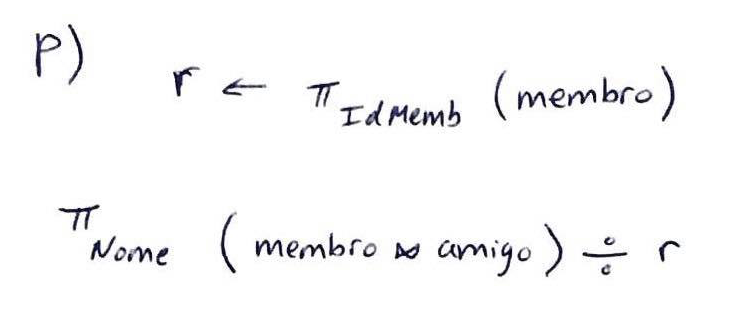 P)
r ← π IdMemb (membro)
π Nome (membro ⋈ amigo) ÷ r